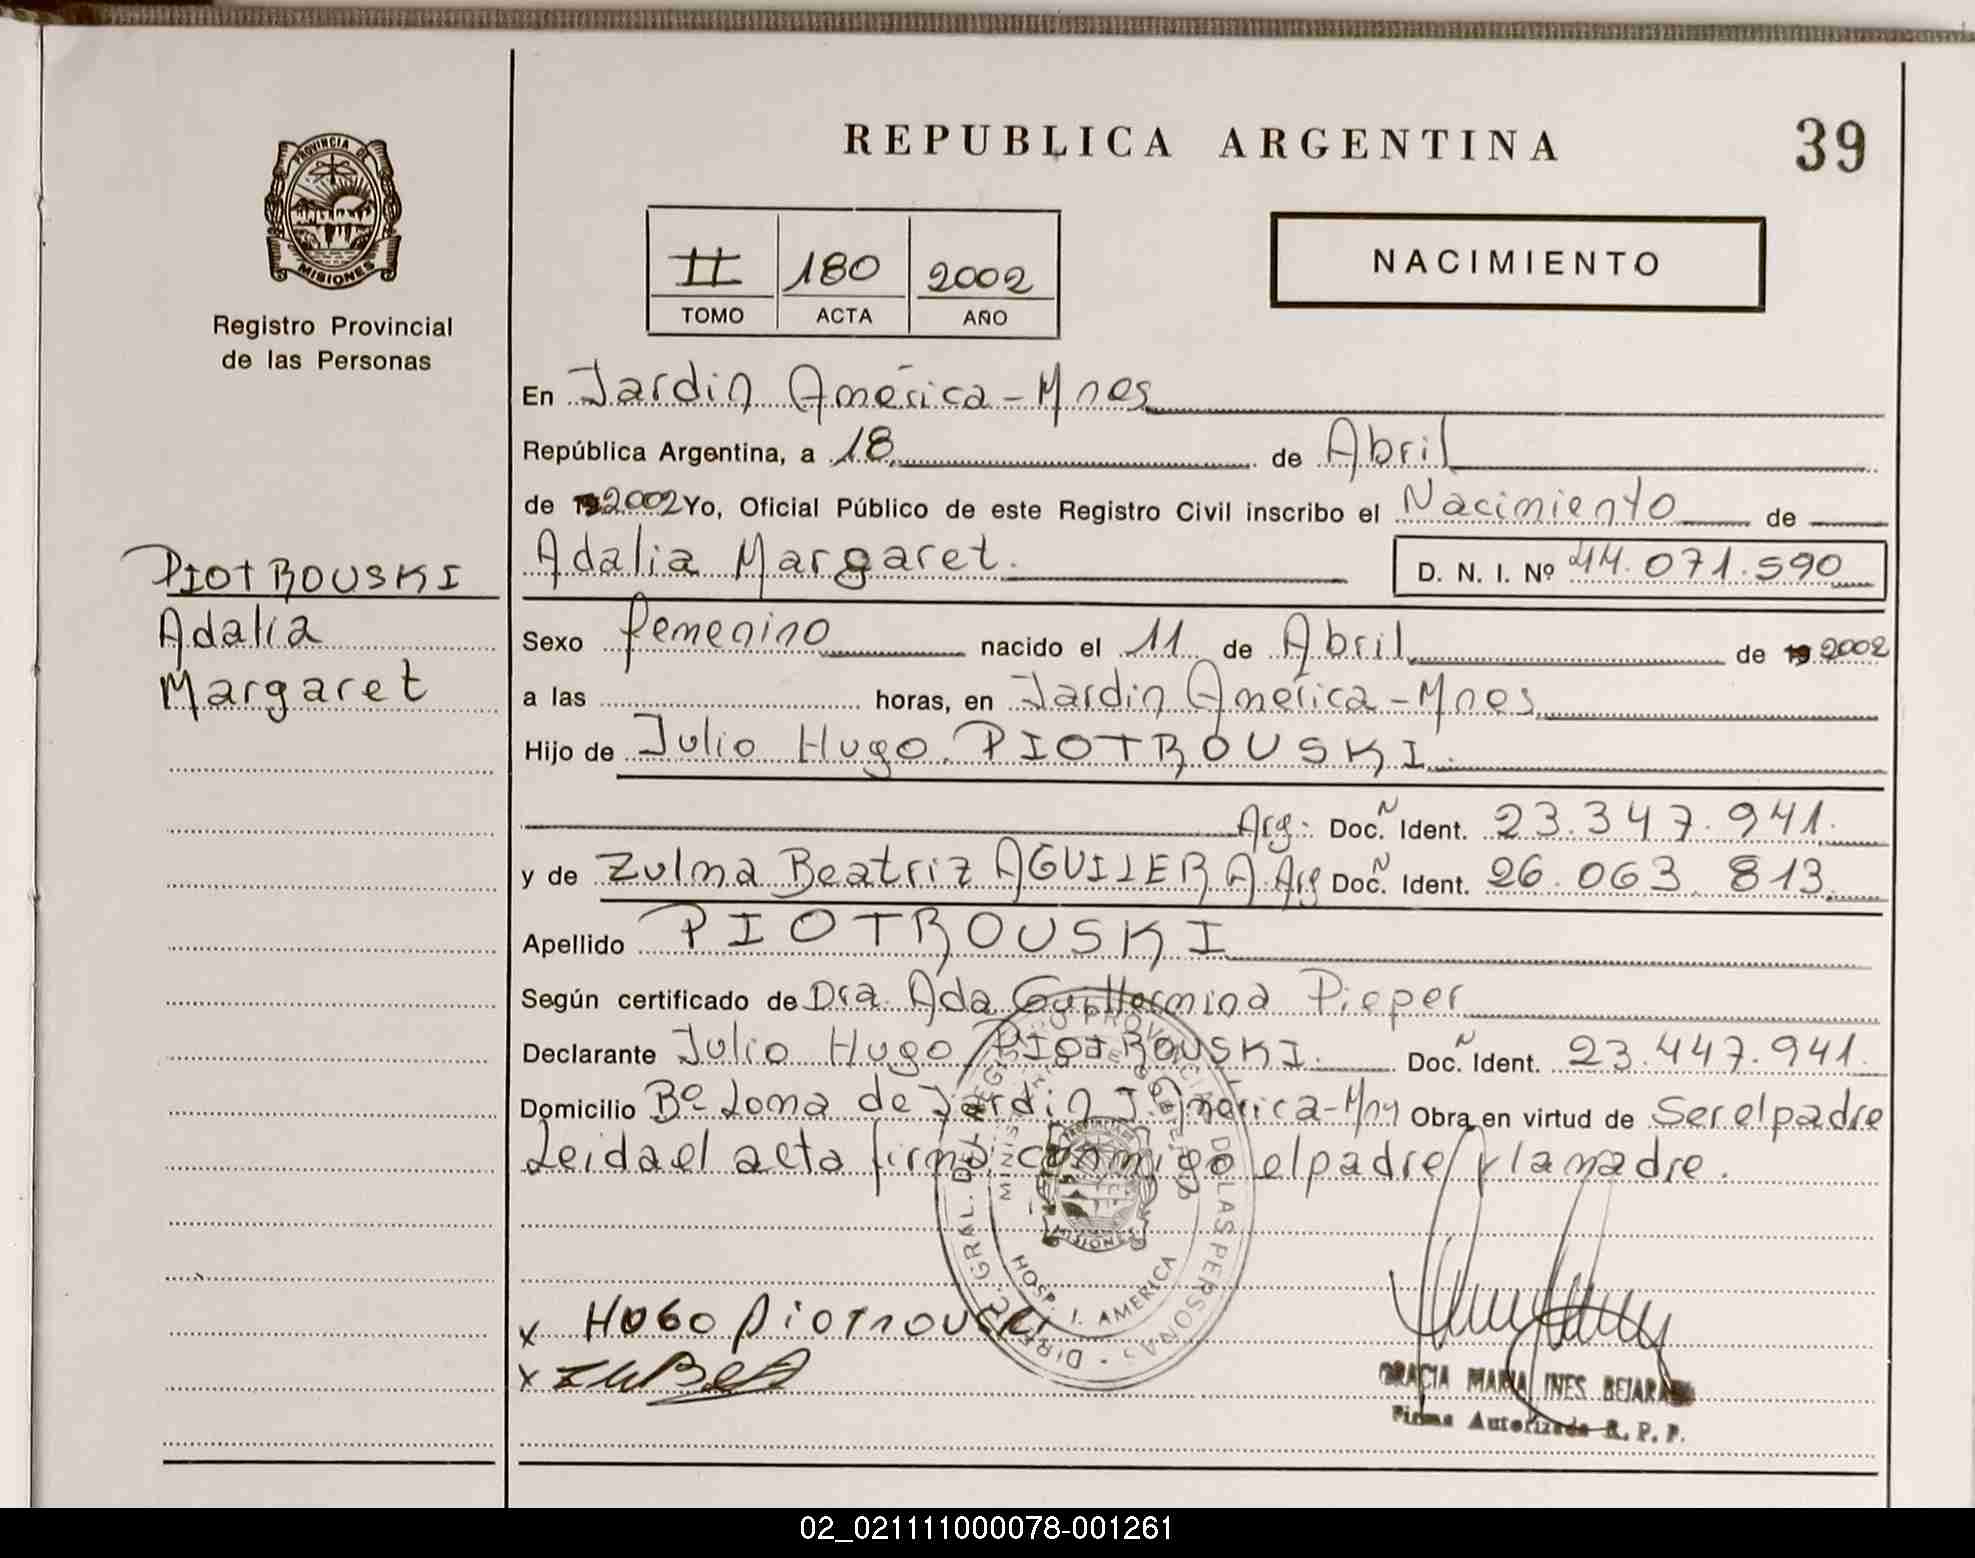 REPUBLICA ARGENTINA
39
PROVINCIA DE
MISIONES
Registro Provincial
de las Personas
II 180 2002
TOMO ACTA AÑO
NACIMIENTO
En Jardin América - Mnes
República Argentina, a 18 de Abril
de 19 2002 Yo, Oficial Público de este Registro Civil inscribo el Nacimiento de
Adalia Margaret. D. N. I. Nº 44.071.590
PIOTROUSKI
Adalia
Margaret
Sexo femenino nacido el 11 de Abril de 19 2002
a las horas, en Jardin América - Mnes
Hijo de Julio Hugo PIOTROUSKI.
Arg. Doc. Ñ Ident. 23.347.941.
y de Zulma Beatriz AGUILERA. Arg Doc. Ñ Ident. 26.063.813
Apellido PIOTROUSKI
Según certificado de Dra. Ada Guillermina Pieper
Declarante Julio Hugo PIOTROUSKI. Doc. Ñ Ident. 23.447.941.
Domicilio Bº Loma de Jardin J. América - Mny Obra en virtud de Ser el padre
Leida el acta firma conmigo el padre y la madre.
DIREC. GRAL. DEL REGISTRO PROVINCIAL DE LAS PERSONAS
HOSP. J. AMERICA
MISIONES
x Hugo Piotrouski
x
GRACIA MARIA INES BEJARANO
Firma Autorizada R. P. P.
02_021111000078-001261